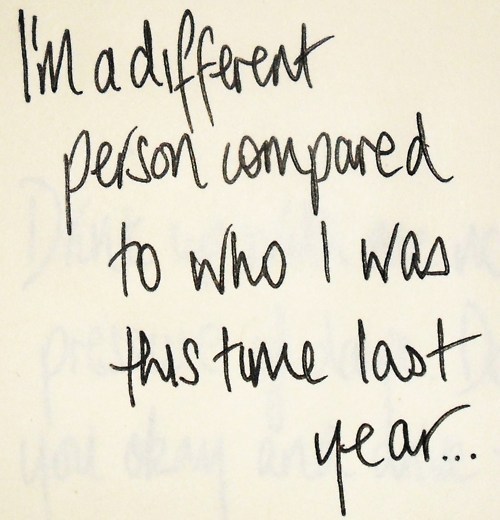 I'm a different
person compared
to who I was
this time last
year...